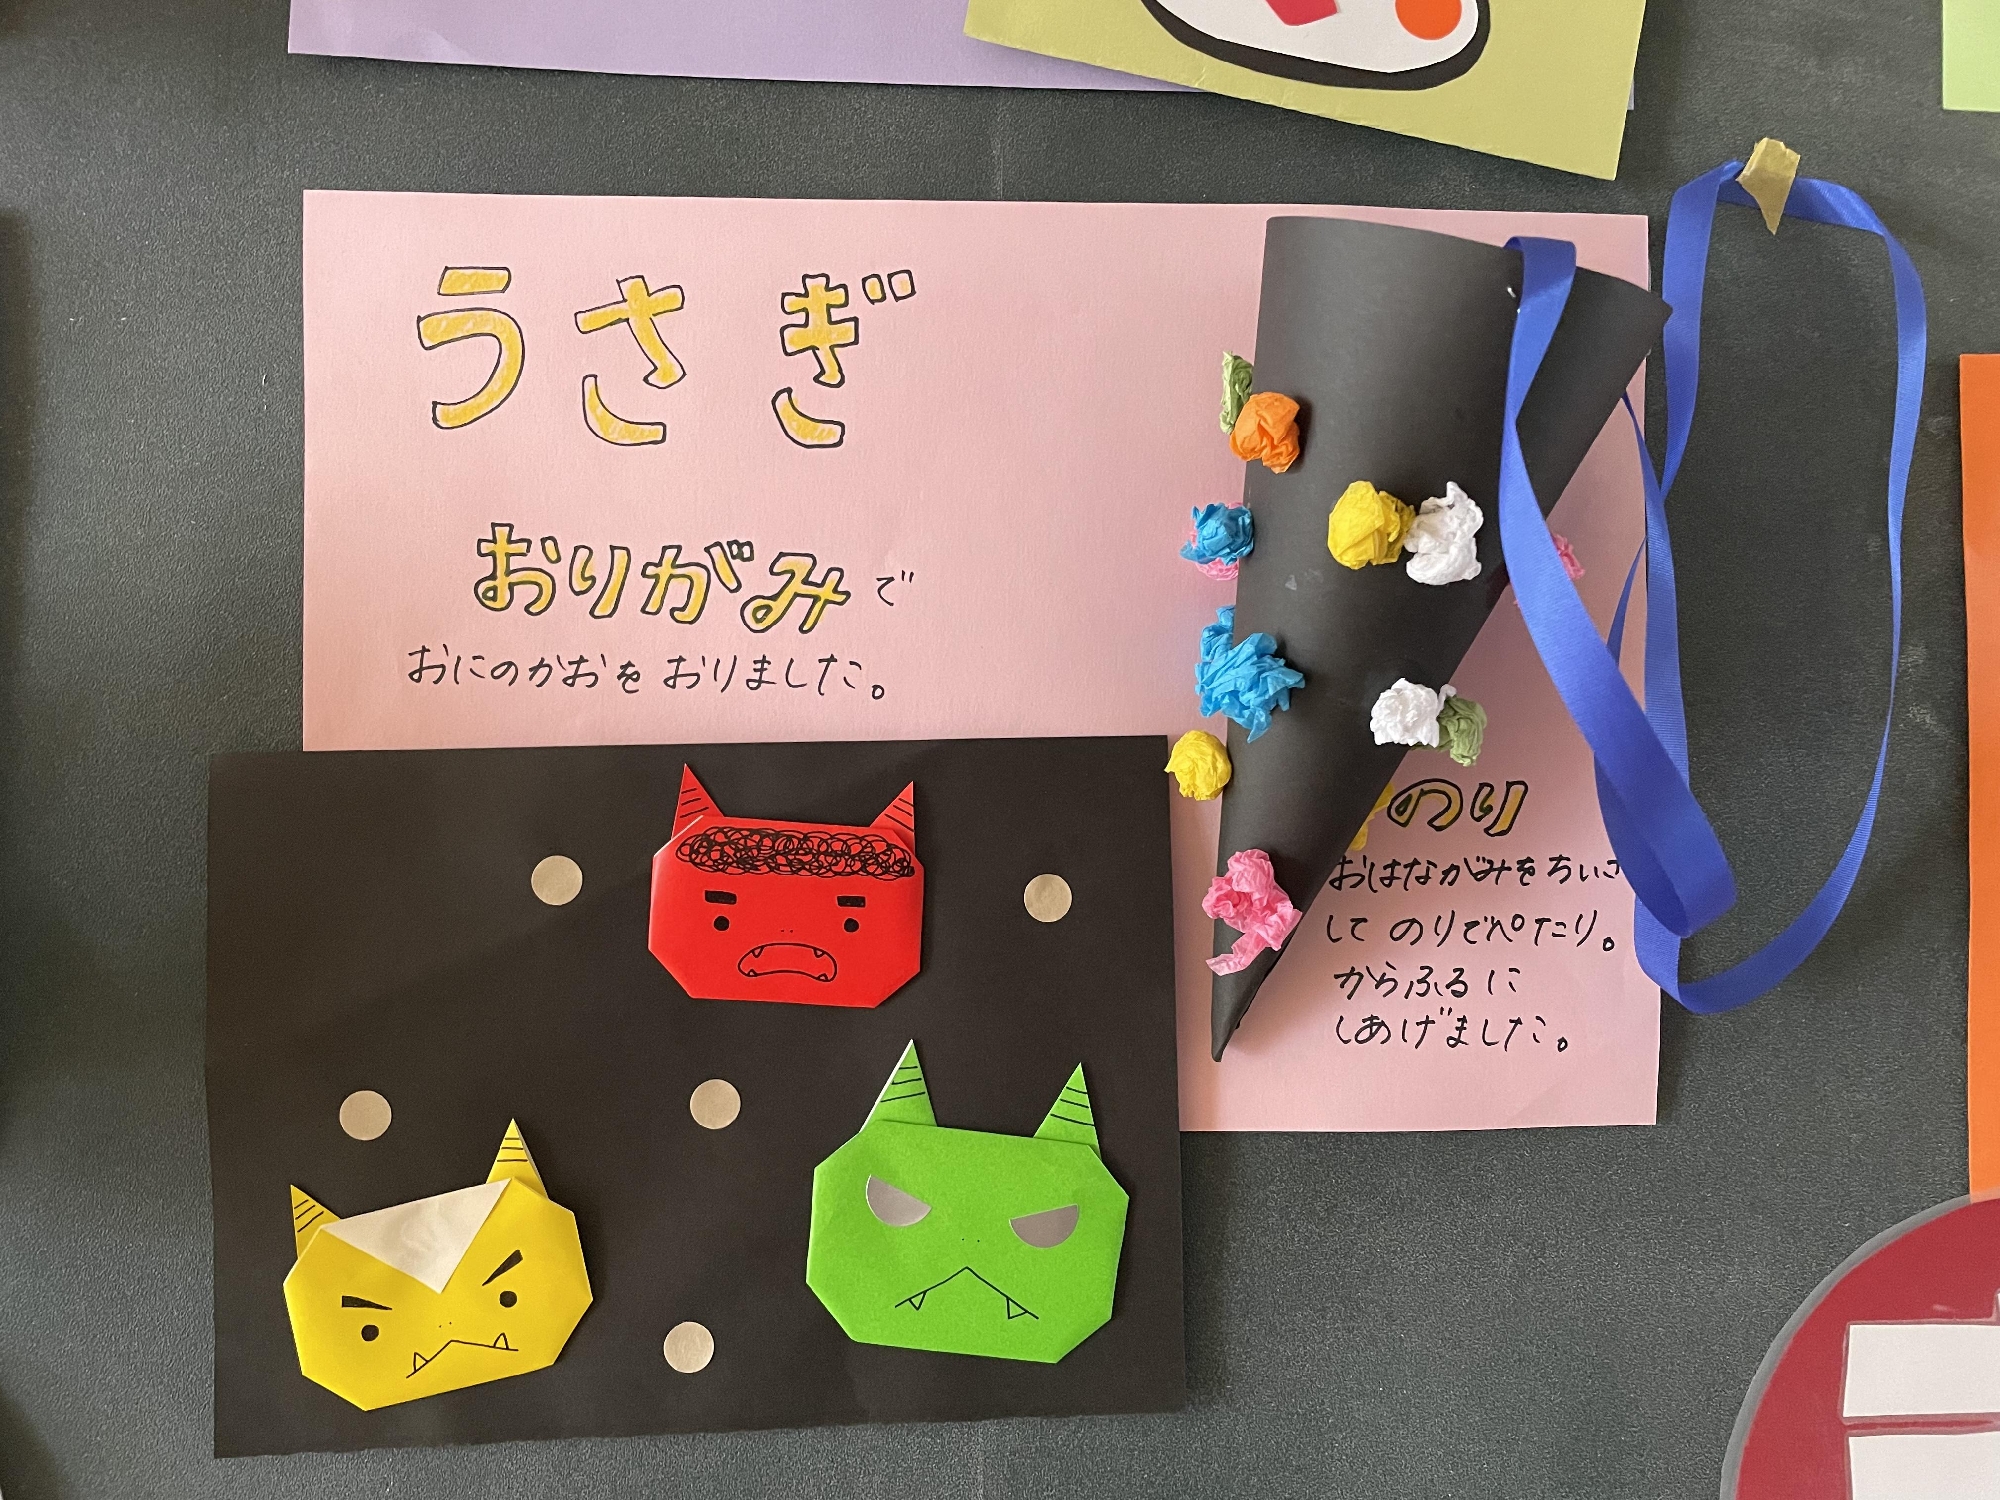 うさぎ
おりがみで
おにのかおを おりました。
のり
おはながみをちいさ
して のりでぺたり。
からふるに
しあげました。